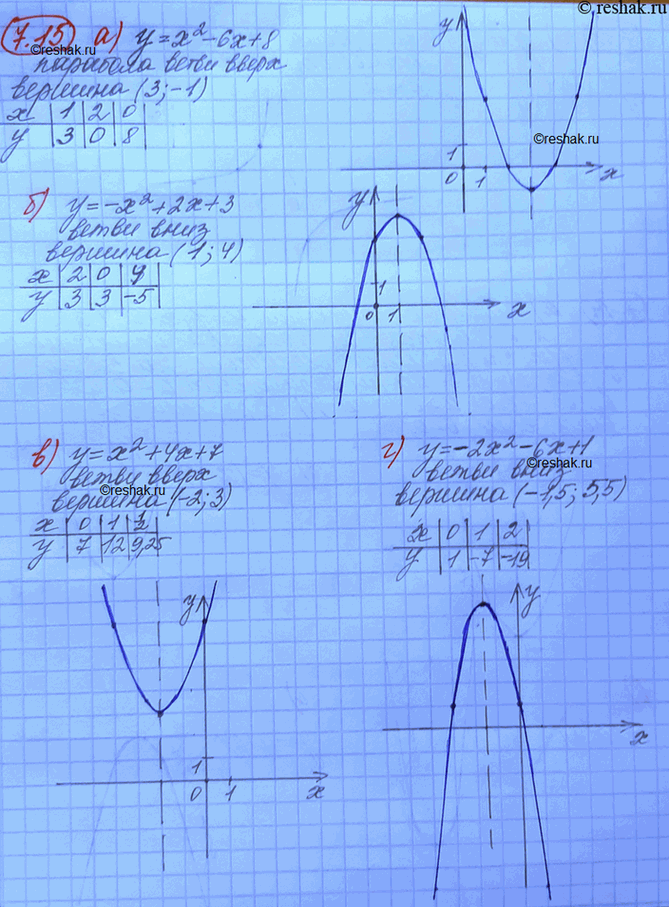 © reshak.ru
7.15 а) y = x² - 6x + 8
парабола ветви вверх
вершина (3; -1)
x | 1 | 2 | 0 |
y | 3 | 0 | 8 |
y
1
0 1 x
© reshak.ru
© reshak.ru
б) y = -x² + 2x + 3
ветви вниз
вершина (1; 4)
x | 2 | 0 | 4 |
y | 3 | 3 | -5 |
y
1
0 1 x
в) y = x² + 4x + 7
ветви вверх
вершина (-2; 3)
© reshak.ru
x | 0 | 1 | ½ |
y | 7 | 12 | 9,25
y
1
0 1 x
г) y = -2x² - 6x + 1
ветви вниз
© reshak.ru
вершина (-1,5; 5,5)
x | 0 | 1 | 2 |
y | 1 | -7 | -19 |
y
x